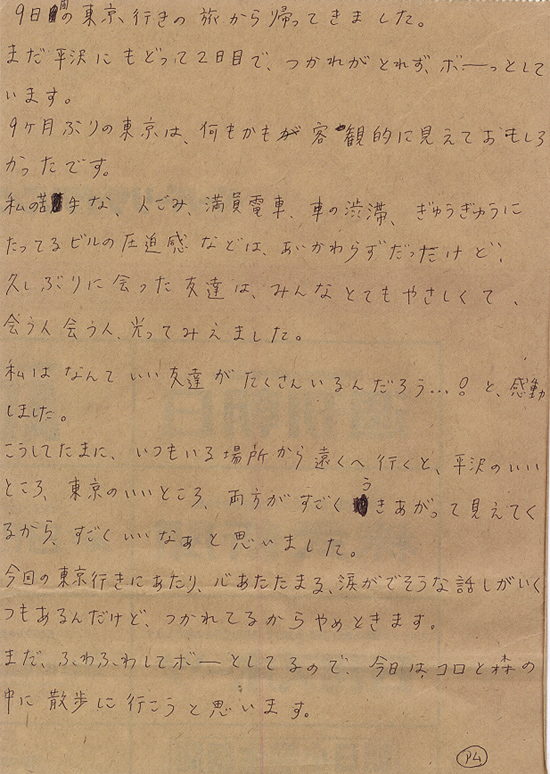 9日間の東京行きの旅から帰ってきました。
まだ平沢にもどって2日目で、つかれがとれず、ボーっとして
います。
9ヶ月ぶりの東京は、何もかもが客観的に見えておもしろ
かったです。
私の苦手な、人ごみ、満員電車、車の渋滞、ぎゅうぎゅうに
たってるビルの圧迫感などは、あいかわらずだったけど、
久しぶりに会った友達は、みんなとてもやさしくて、
会う人会う人、光ってみえました。
私はなんていい友達がたくさんいるんだろう…!と、感動
しました。
こうしてたまに、いつもいる場所から遠くへ行くと、平沢のいい
ところ、東京のいいところ、両方がすごくうきあがって見えてく
るから、すごくいいなぁと思いました。
今回の東京行きにあたり、心あたたまる、涙がでそうな話しがいく
つもあるんだけど、つかれてるからやめときます。
まだ、ふわふわしてボーとしてるので、今日は、コロと森の
中に散歩に行こうと思います。
P4